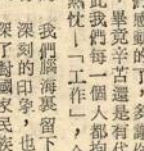 感動的了，多謝你
畢竟辛苦還是有代
此我們每一個人都抱
熱忱—「工作」，今
我們腦海裏留下
深刻的印象，也
深了對國家民族